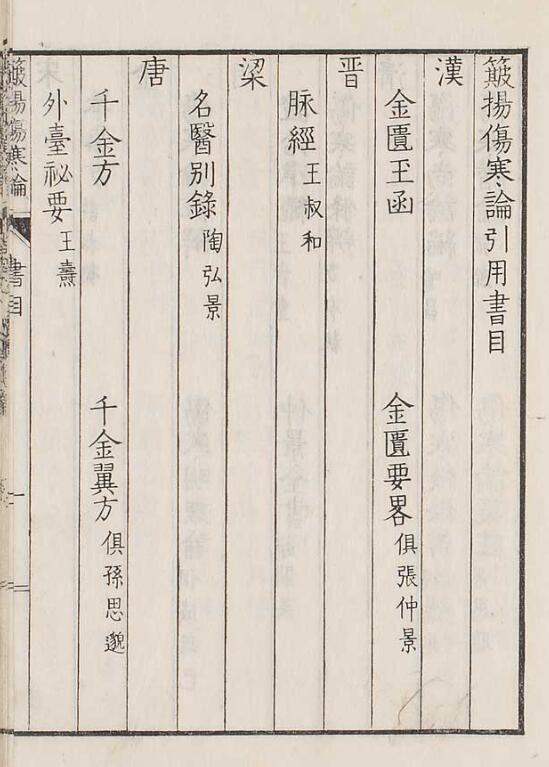 簸揚傷寒論引用書目
漢
金匱玉函 金匱要畧 俱張仲景
晋
脉經 王叔和
梁
名醫别錄 陶弘景
唐
千金方 千金翼方 俱孫思邈
外臺祕要 王燾
簸揚傷寒論 書目